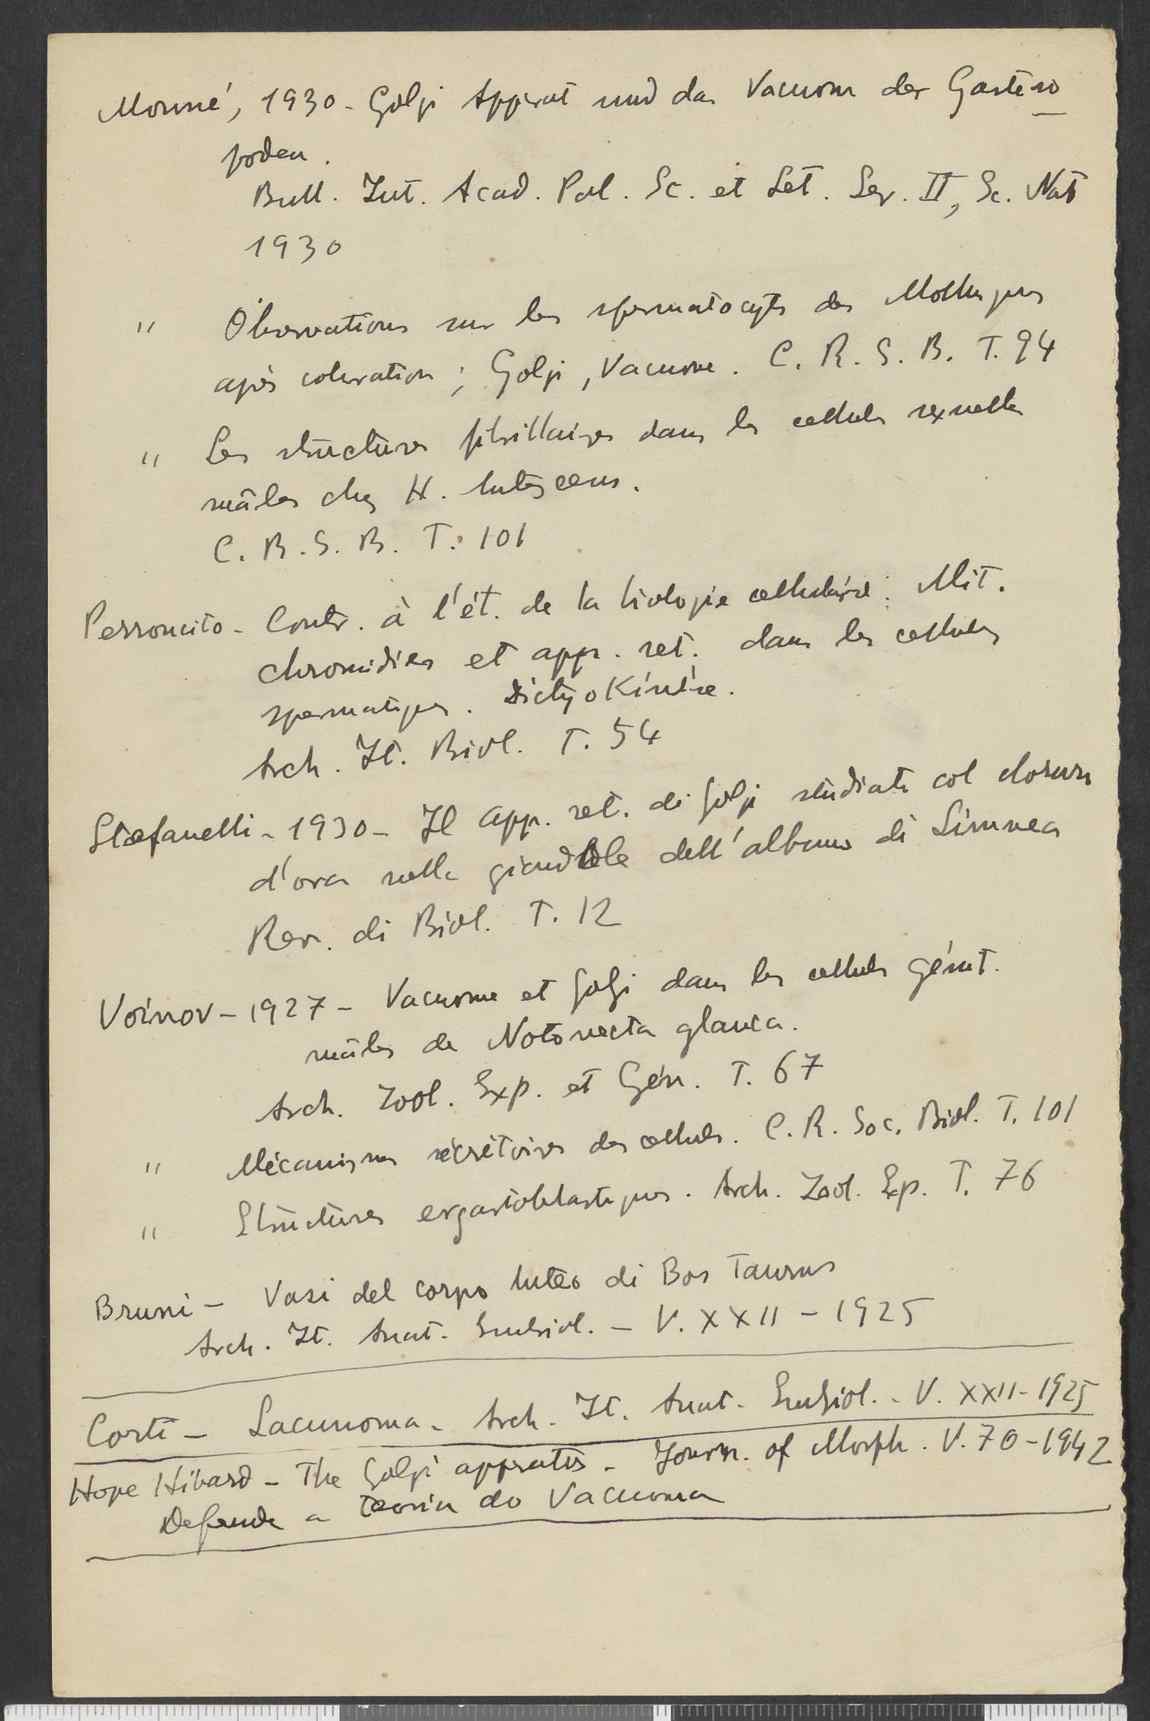 Monné, 1930 - Golgi Apparat und das Vacuom der Gastero
poden.
Bull. Int. Acad. Pol. Sc. et Let. Ser. II, Sc. Nat
1930
" Observations sur les spermatocytes des Mollusques
après coloration ; Golgi, Vacuome. C. R. S. B. T. 94
" Les structures fibrillaires dans les cellules sexuelles
mâles chez H. lutescens.
C. R. S. B. T. 101
Perroncito - Contr. à l'ét. de la biologie cellulaire : Mit.
chromidies et app. ret. dans les cellules
spermatiques. Dictyokinèse.
Arch. It. Biol. T. 54
Stefanelli - 1930 - Il app. ret. di Golgi studiati col cloruro
d'oro nella giandole dell'albume di Limnea
Rev. di Biol. T. 12
Voinov - 1927 - Vacuome et Golgi dans les cellules génit.
mâles de Notonecta glauca.
Arch. Zool. Exp. et Gén. T. 67
" Mécanismes sécrétoires des cellules. C. R. Soc. Biol. T. 101
" Structures ergastoblastiques. Arch. Zool. Exp. T. 76
Bruni - Vasi del corpo luteo di Bos Taurus
Arch. It. Anat. Embriol. - V. XXII - 1925
Corti - Lacunoma - Arch. It. Anat. Embriol. - V. XXII - 1925
Hope Hibard - The Golgi appratus - Journ. of Morph. V. 70 - 1942
Defende a teoria do Vacuoma